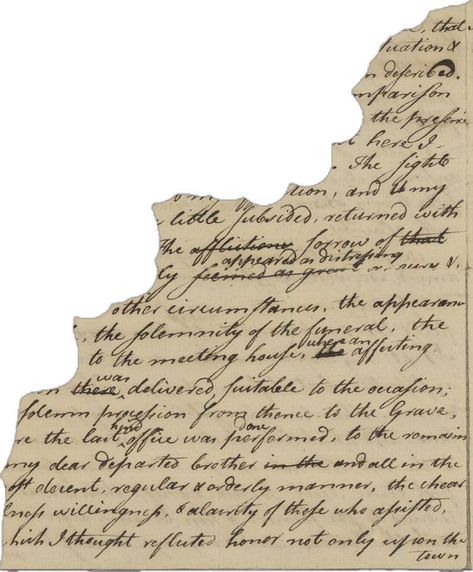 that
tuation &
n described.
mparison
the presence
here I
The sight
tion, and my
little subsided, returned with
The afflictions sorrow of that
appeared as distressing
ly seemed as great as ours &
other circumstances, the appearan
, the solemnity of the funeral, the
where an
to the meeting house, the affecting
was
on there delivered suitable to the occasion;
solemn procession from thence to the Grave,
kind one
re the last office was performed, to the remain
my dear departed brother in the and all in the
st decent, regular & orderly manner, the chear
lness willingness, & alacrity of those who assisted,
hich I thought reflected honor not only upon the
town